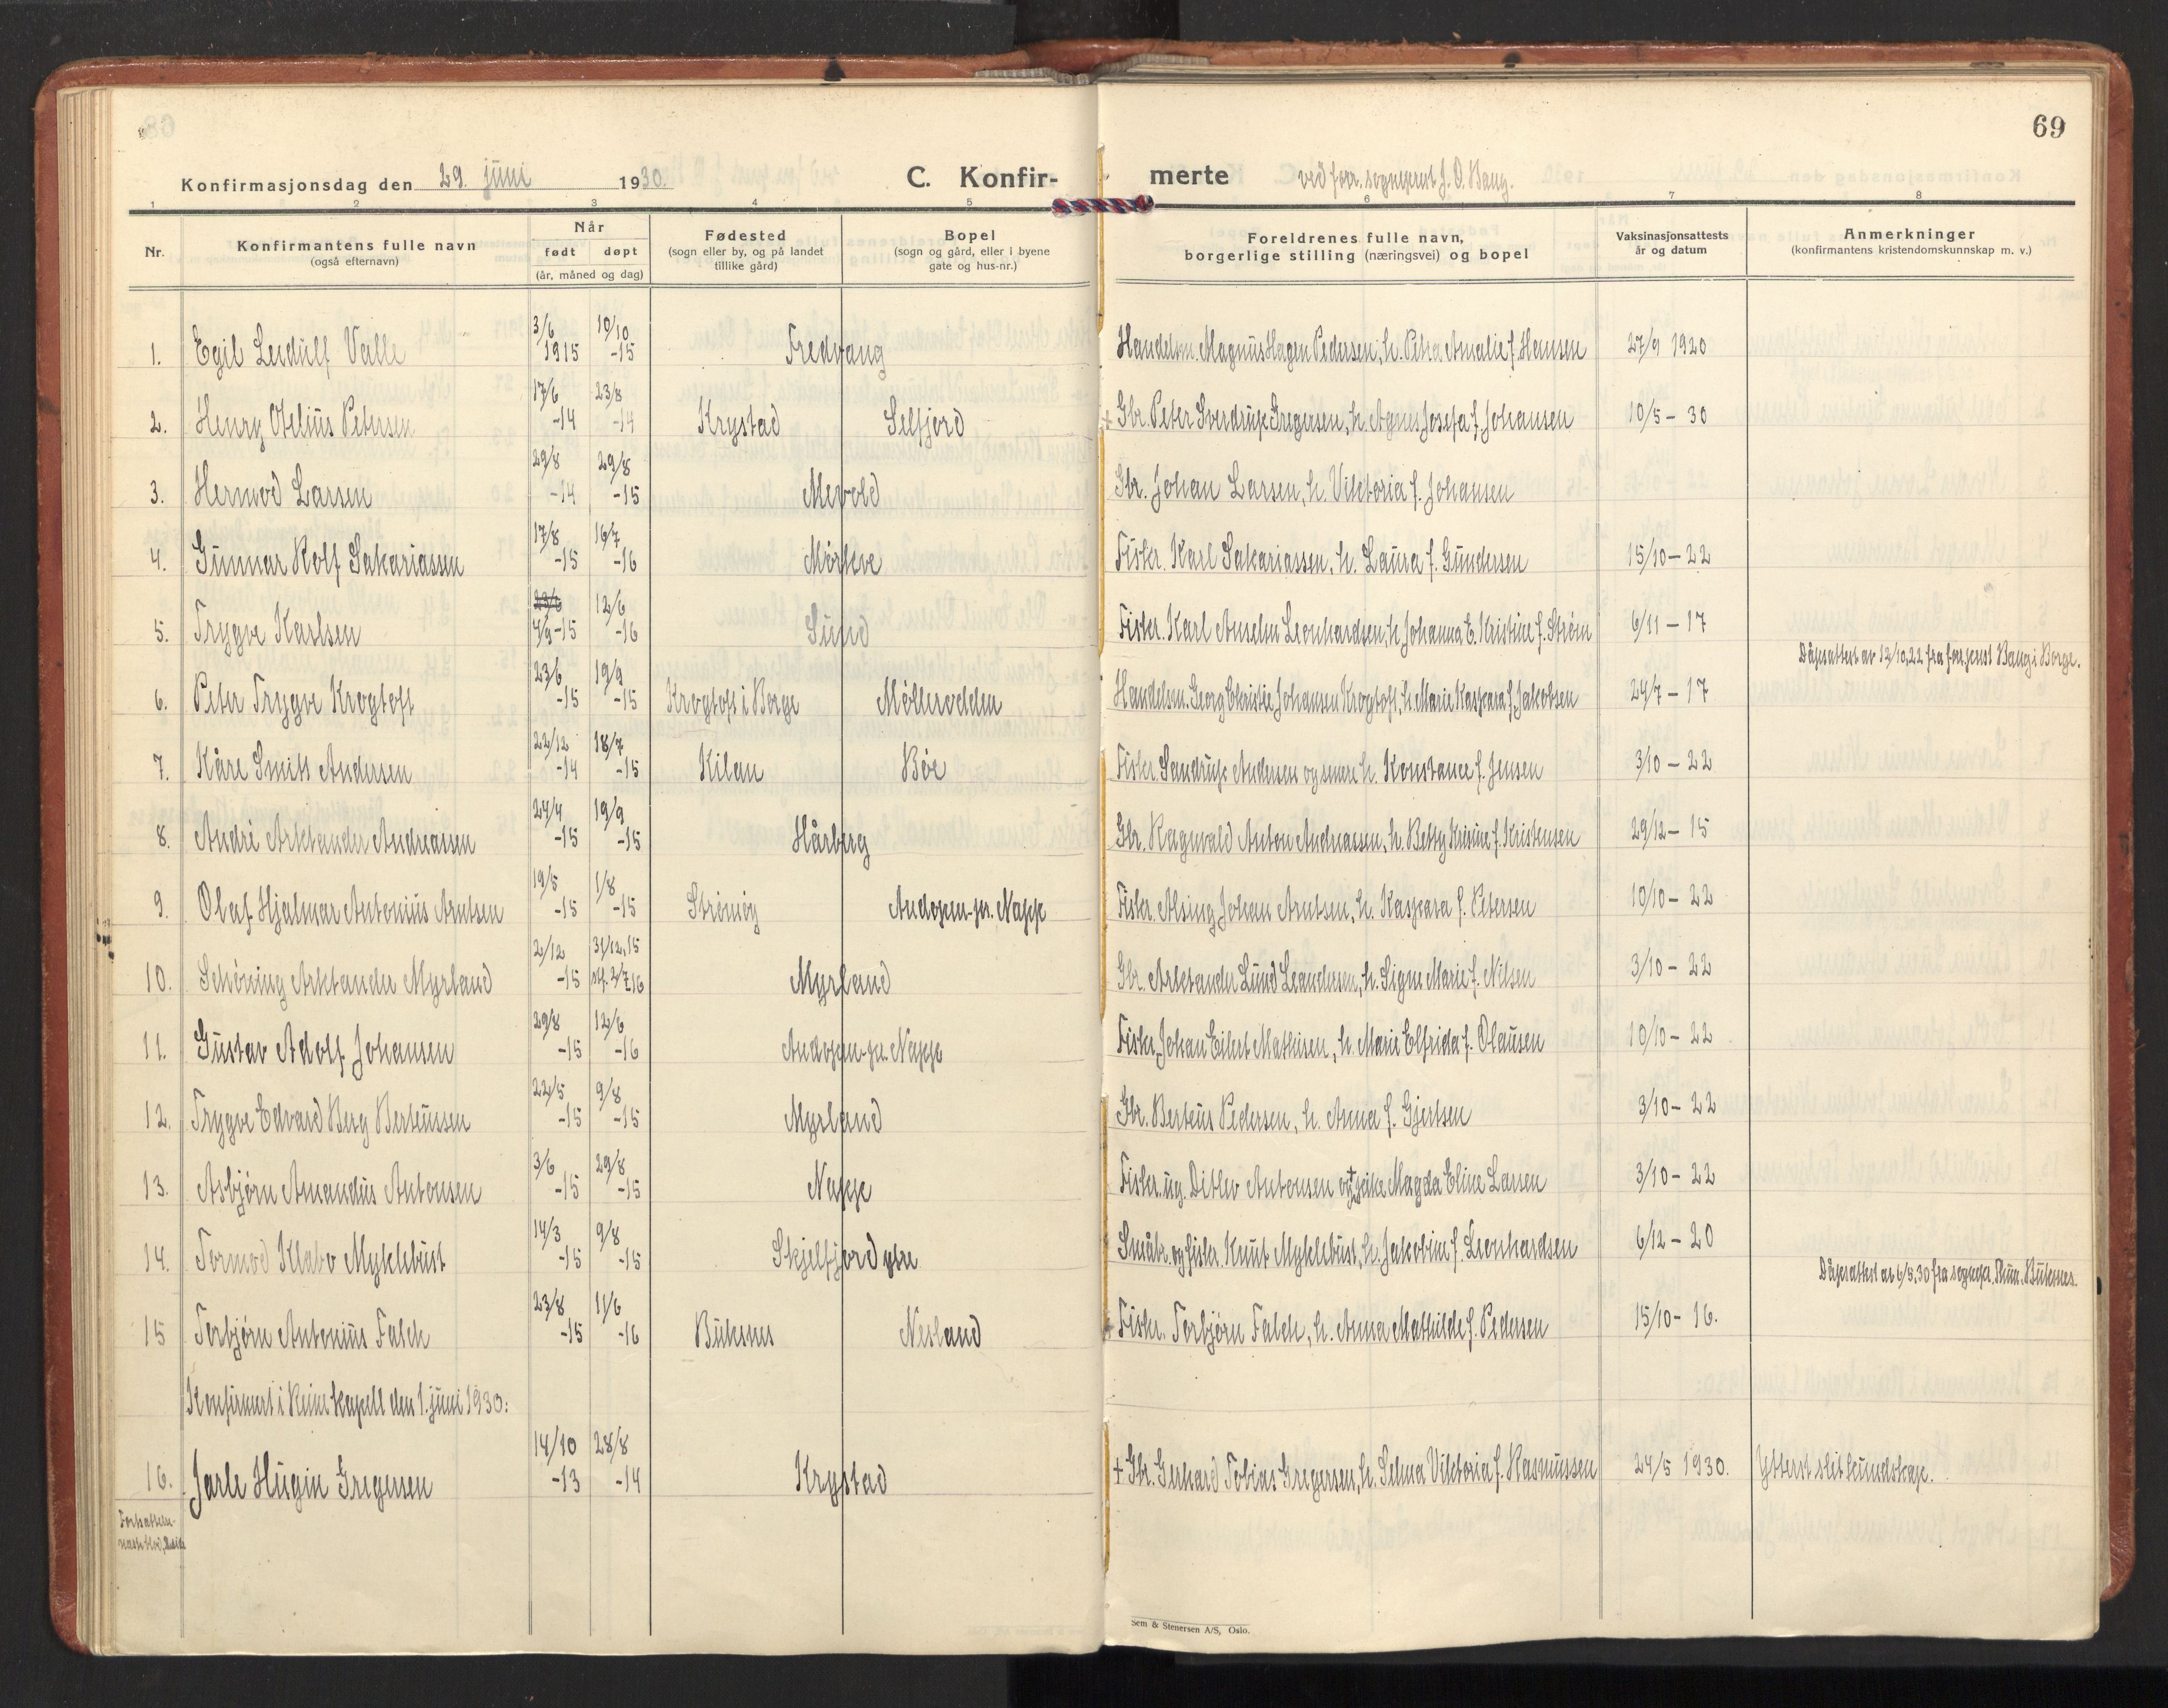 69
Konfirmasjonsdag den 29. juni 1930. C. Konfir- merte ved forr. sogneprest J. O. Bang.
1 2 3 4 5 6 7 8
Nr. Konfirmantens fulle navn (også efternavn) Når født døpt (år, måned og dag) Fødested (sogn eller by, og på landet tillike gård) Bopel (sogn og gård, eller i byene gate og hus-nr.) Foreldrenes fulle navn, borgerlige stilling (næringsvei) og bopel Vaksinasjonsattests år og datum Anmerkninger (konfirmantens kristendomskunnskap m. v.)
1. Egil Leidulf Valle 3/6 1915 10/10 -15 Fredvang Handelsm. Magnus Hagen Pedersen, h. Petra Amalie f. Hansen 27/9 1920
2. Henry Otelius Petersen 17/6 -14 23/8 -14 Krystad Selfjord + Gbr. Peter Sverdrup Gregersen, h. Agnes Josefa f. Johansen 10/5 - 30
3. Hermod Larsen 29/8 -14 29/8 -15 Mevold Gbr. Johan Larsen, h. Viktoria f. Johansen
4. Gunnar Rolf Sakariassen 17/8 -15 16/7 -16 Mørkve Fisker. Karl Sakariassen, h. Laura f. Gundersen 15/10 - 22
5. Trygve Karlsen 23/6 4/9 -15 12/6 -16 Sund Fisker. Karl Anselm Leonhardsen, h. Johanna E. Kristine f. Strøm 6/11 - 17
Dåpsattest av 12/10,22 fra forr. prest Bang i Borge.
6. Peter Trygve Krogtoft 23/6 -15 19/9 -15 Krogtoft i Borge Møllerodden Handelsm. Georg Christie Johansen Krogtoft, h. Marie Kaspara f. Jakobsen 24/7 - 17
7. Kåre Smith Andersen 22/12 -14 18/7 -15 Kilan Bøe Fisker. Sandrup Andersen og smere h. Konstance f. Jensen 3/10 - 22
8. André Arktander Andreassen 24/4 -15 19/9 -15 Hårberg Gbr. Ragnvald Anton Andreassen, h. Betty Kristine f. Kristensen 29/12 - 15
9. Olaf Hjalmar Antonius Arntsen 19/5 -15 1/8 -15 Strømøy Andopen-pr. Napp Fisker. Alsing Johan Arntsen, h. Kaspara f. Petersen 10/10 - 22
10. Schøning Arktander Myrland 2/12 -15 31/12,15 stf. 2/7,16 Myrland Gbr. Arktander Lund Leandersen, h. Signe Marie f. Nilsen 3/10 - 22
11. Gustav Adolf Johansen 29/8 -15 12/6 -16 Andopen-pr. Napp Fisker. Johan Eilert Mathisen, h. Marie Elfrida f. Olausen 10/10 - 22
12. Trygve Edvard Berg Berteussen 22/5 -15 9/8 -15 Myrland Gbr. Berteus Pedersen, h. Anna f. Gjertsen 3/10 - 22
13. Asbjørn Amandus Antonsen 3/6 -15 29/8 -15 Napp Fisker. ug. Ditlev Antonsen og + pike Magda Eline Larsen 3/10 - 22
14. Tormod Klabo Myklebust 14/3 -15 9/8 -15 Skjelfjord ytre Småbr. og fisker. Knut Myklebust, h. Jakobine f. Leonhardsen 6/12 - 20
Dåpsattest av 6/5,30 fra sognepr. Buksnes.
15 Torbjørn Antonius Falch 23/8 -15 11/6 -16 Buksnes Nesland + Fisker. Torbjørn Falch, h. Anna Mathilde f. Pedersen 15/10 - 16.
Konfirmert i Reine kapell den 1. juni 1930:
16. Jarle Hugin Gregersen 14/10 -13 28/8 -14 Krystad + Gbr. Gerhard Tobias Gregersen, h. Selma Viktoria f. Rasmussen 24/5 1930. Ytterst slet kundskap.
Fortsættelse
næste blad,
Sem & Stenersen A/S, Oslo.